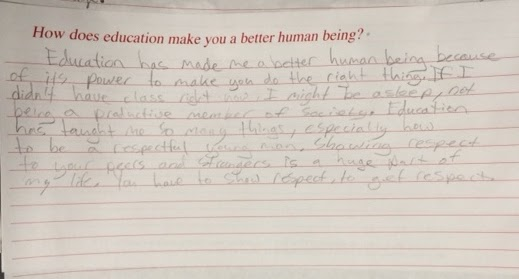 How does education make you a better human being?
Education has made me a better human being because
of it's power to make you do the right thing. If I
didn't have class right now, I might be asleep, not
being a productive member of society. Education
has taught me so many things, especially how
to be a respectful young man. Showing respect
to your peers and strangers is a huge part of
my life. You have to show respect, to get respect.